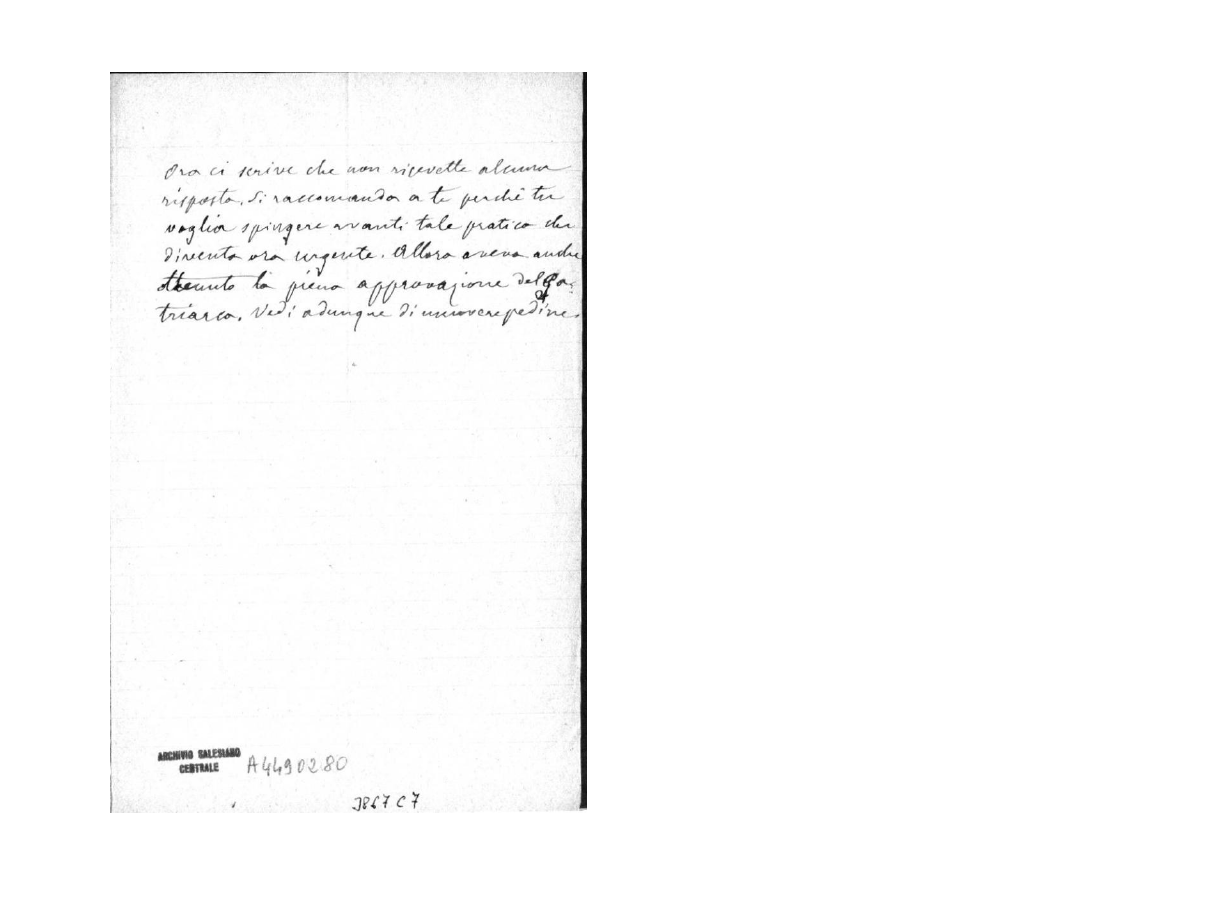 Ora ci scrive che non ricevette alcuna
risposta. Si raccomanda a te perchè tu
voglia spingere avanti tale pratica che
diventa ora urgente. Allora aveva anche
ottenuto la piena approvazione del Pa-
triarca. Vedi adunque di
ARCHIVIO SALESIANO
CENTRALE
A4490280
3867 C7